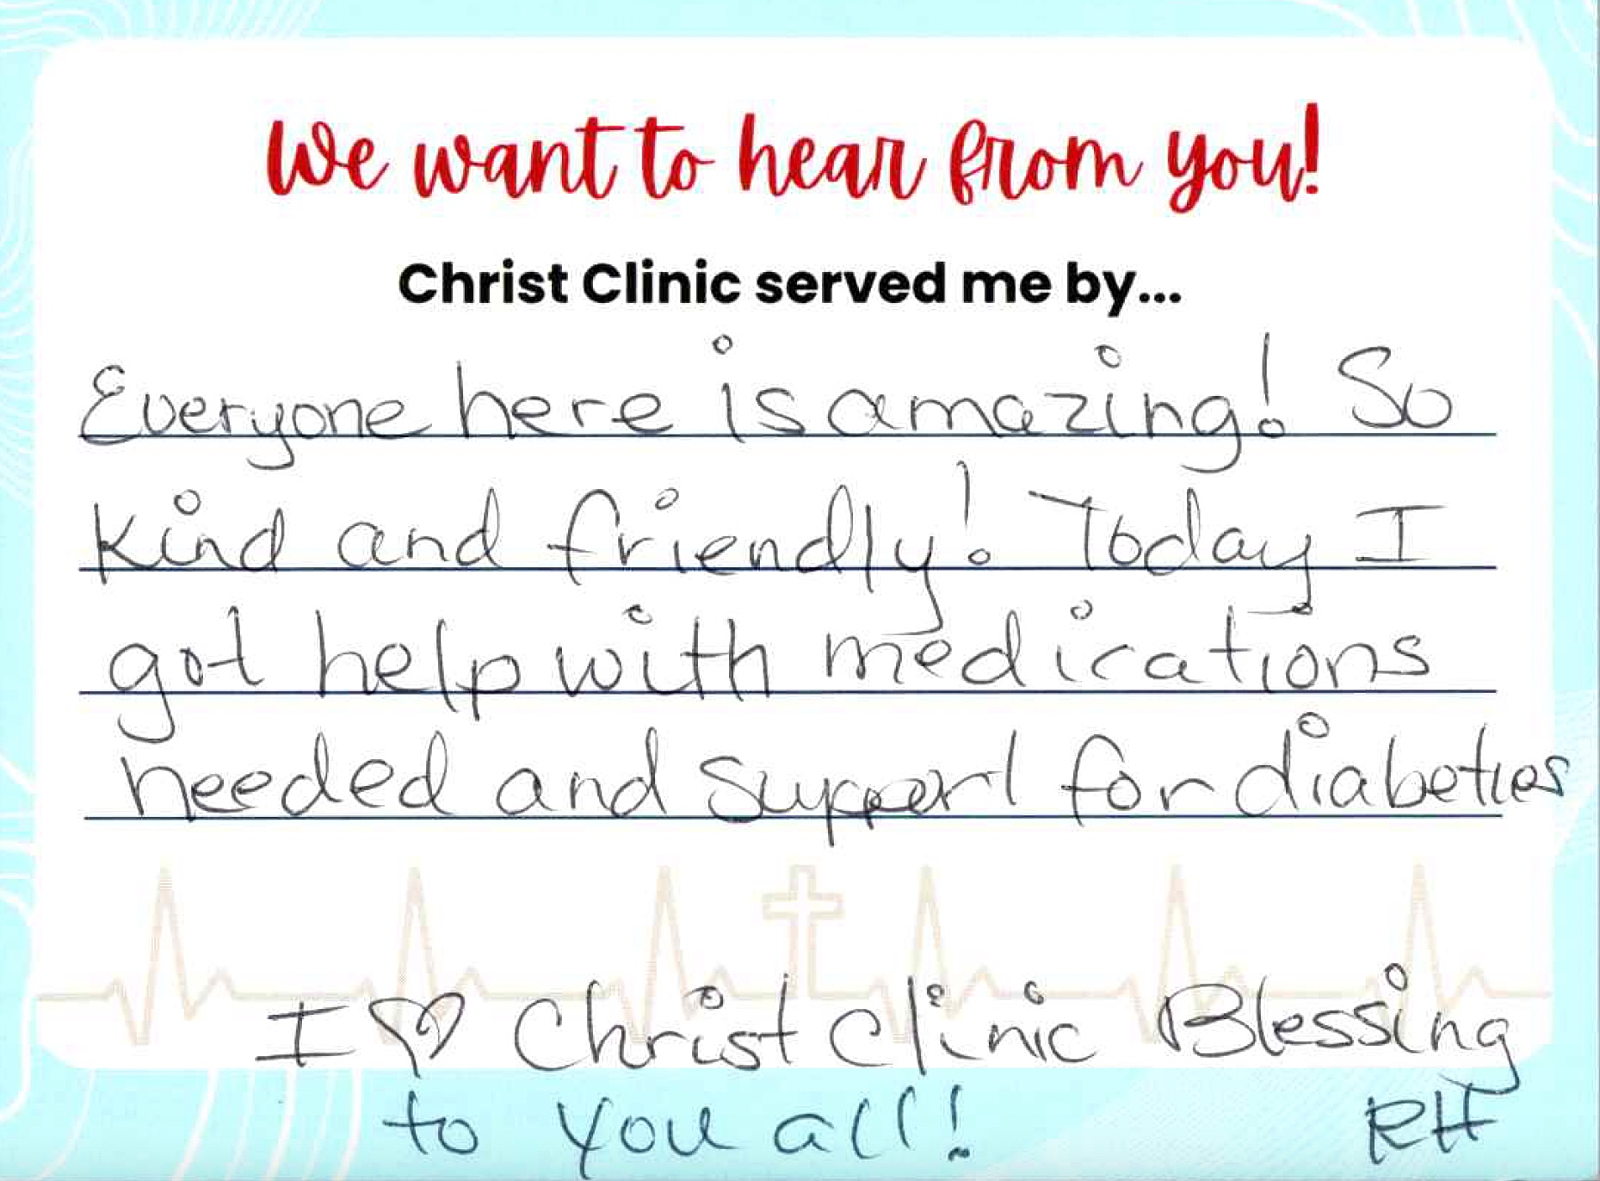 We want to hear from you!
Christ Clinic served me by...
Everyone here is amazing! So
kind and friendly! Today I
got help with medications
needed and support for diabeties
I ♡ Christ Clinic Blessing
to you all! RH